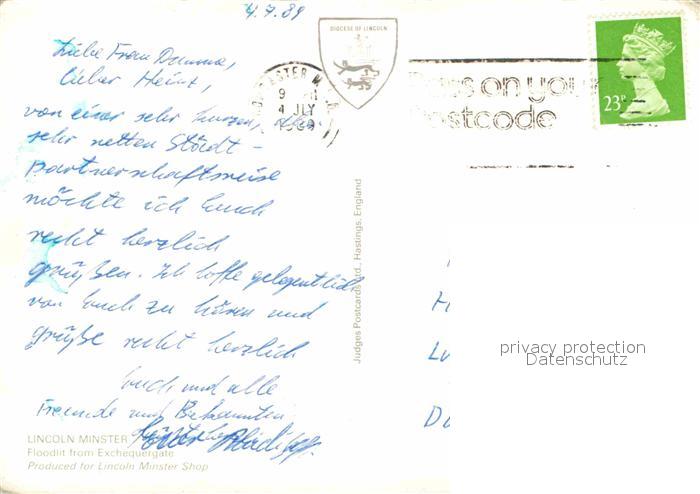 4.7.89
Liebe Frau Dumma,
lieber Heinz,
von einer sehr kurzen, aber
sehr netten Städt-
partnerschaftsreise
möchte ich Euch
recht herzlich
grüßen. Ich hoffe gelegentlich
von Euch zu hören und
grüße recht herzlich
Euch und alle
Freunde und Bekannten
DIOCESE OF LINCOLN
9
4 JLY
1989
Pass on your
postcode
23P
Judges Postcards Ltd., Hastings, England
privacy protection
Datenschutz
LINCOLN MINSTER
Floodlit from Exchequergate
Produced for Lincoln Minster Shop